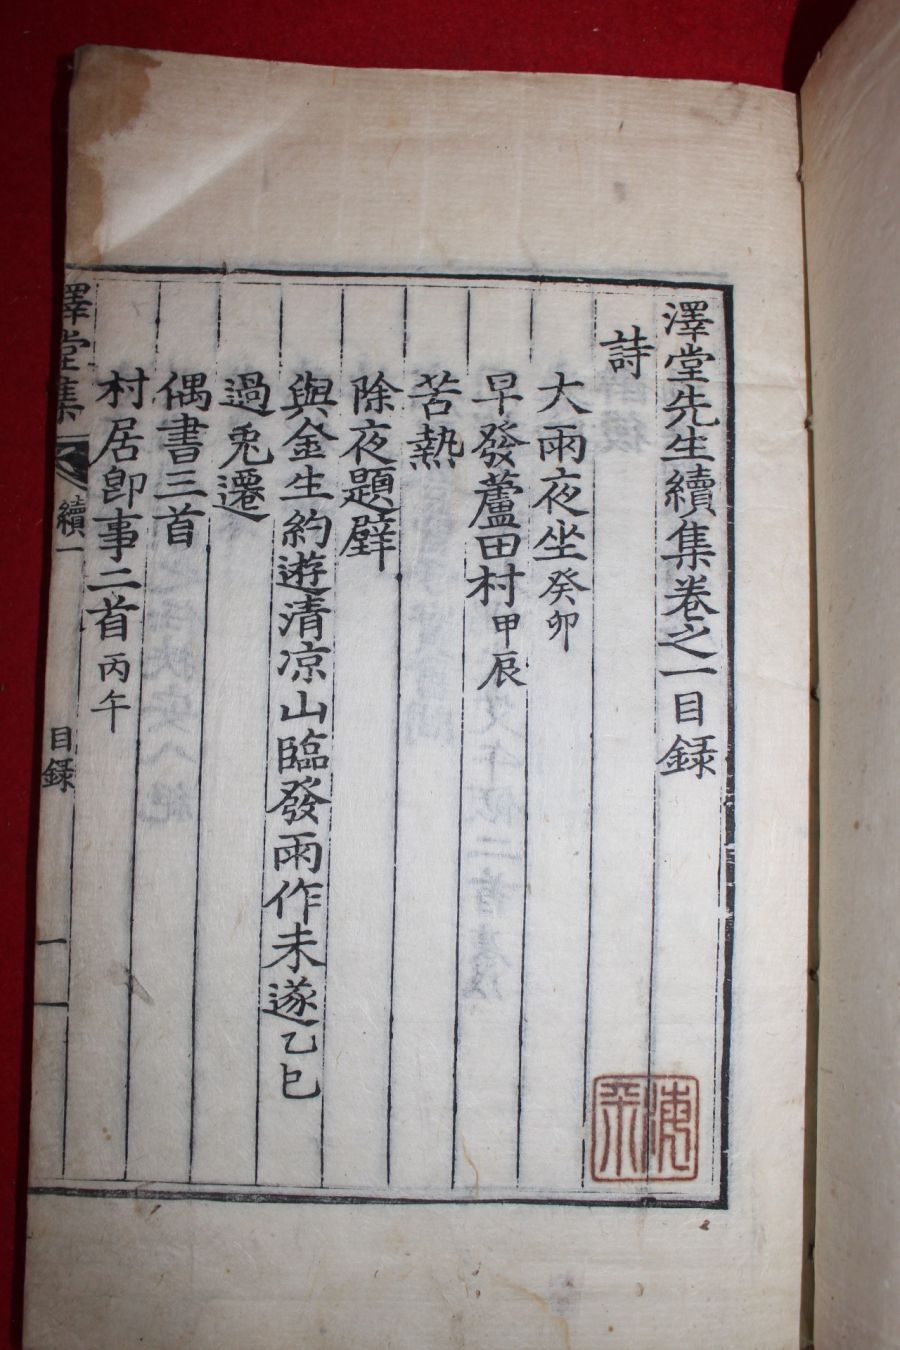 澤堂先生續集卷之一目録
詩
大雨夜坐癸卯
早發蘆田村甲辰
苦熱
除夜題壁
與金生約遊清凉山臨發雨作未遂乙巳
過兎遷
偶書三首
村居卽事二首丙午
澤堂集
續一
目録
一